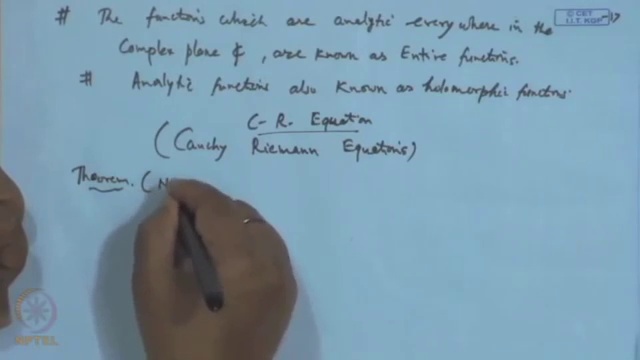 © CET
I.I.T. KGP
# The functions which are analytic everywhere in the
Complex plane ₵, are known as Entire functions.
# Analytic functions also known as holomorphic functions.
C-R. Equation
(Cauchy Riemann Equations)
Theorem. (N
NPTEL